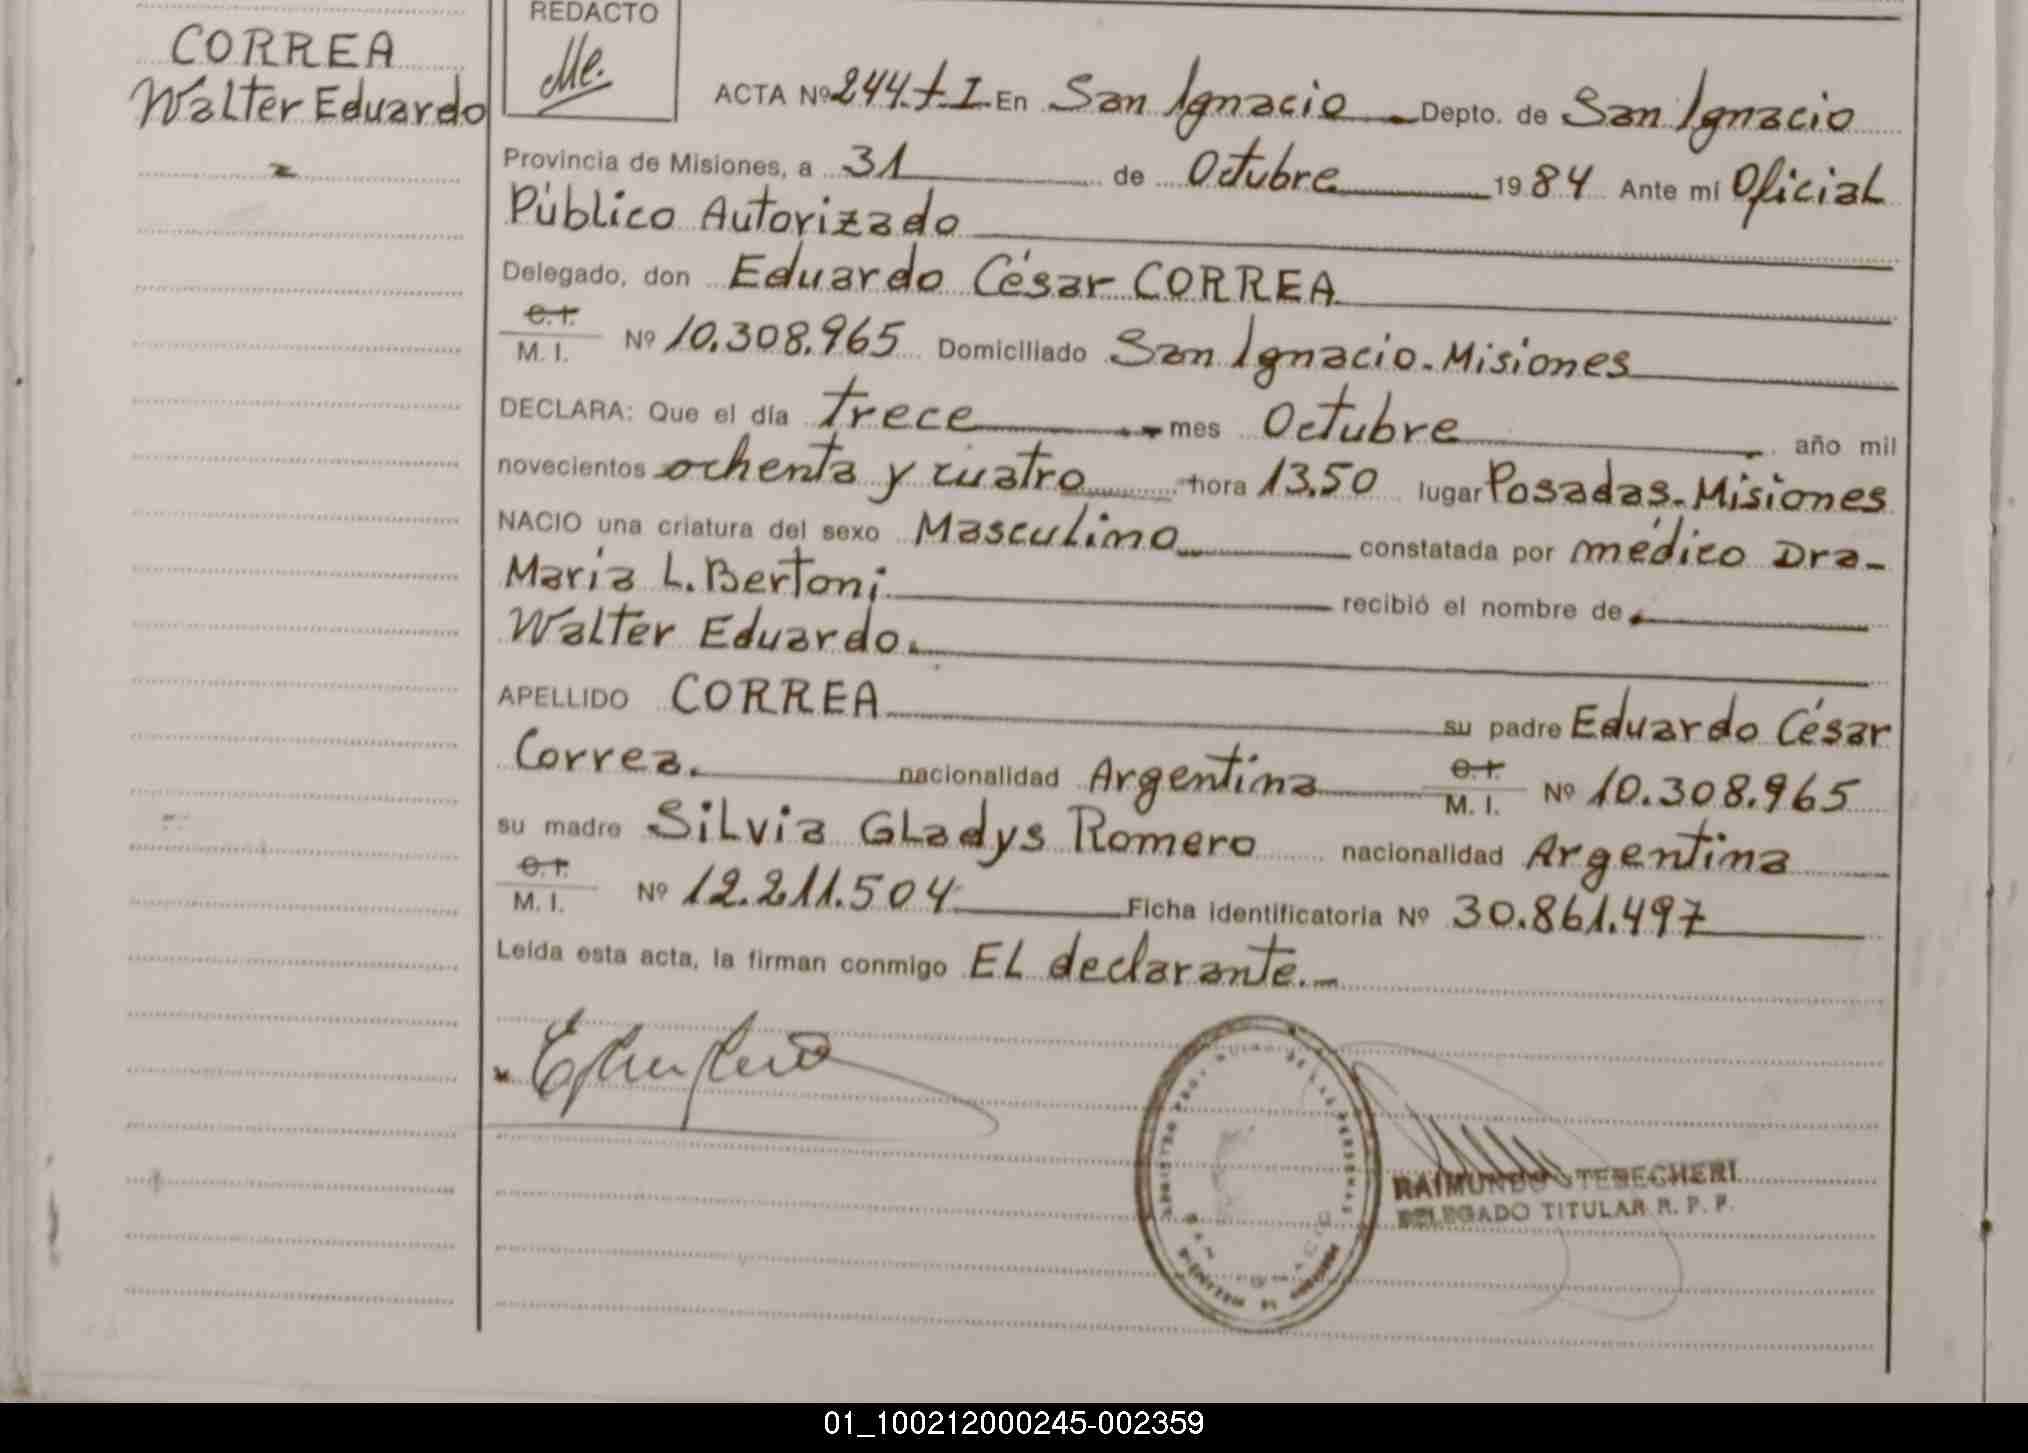 CORREA
Walter Eduardo
REDACTO
ACTA Nº 244.t.I. En San Ignacio Depto. de San Ignacio
Provincia de Misiones, a 31 de Octubre 1984 Ante mi Oficial
Público Autorizado
Delegado, don Eduardo César CORREA
C.I.
M. I. Nº 10.308.965 Domiciliado San Ignacio-Misiones
DECLARA: Que el día trece mes Octubre año mil
novecientos ochenta y cuatro hora 13,50 lugar Posadas-Misiones
NACIO una criatura del sexo Masculino constatada por médico Dra-
María L. Bertoni recibió el nombre de
Walter Eduardo.
APELLIDO CORREA su padre Eduardo César
Correa. nacionalidad Argentina C.I. M. I. Nº 10.308.965
su madre Silvia Gladys Romero nacionalidad Argentina
C.I.
M. I. Nº 12.211.504 Ficha identificatoria Nº 30.861.497
Leída esta acta, la firman conmigo El declarante.-
RAIMUNDO TEBECHERI
DELEGADO TITULAR R. P. P.
01_100212000245-002359